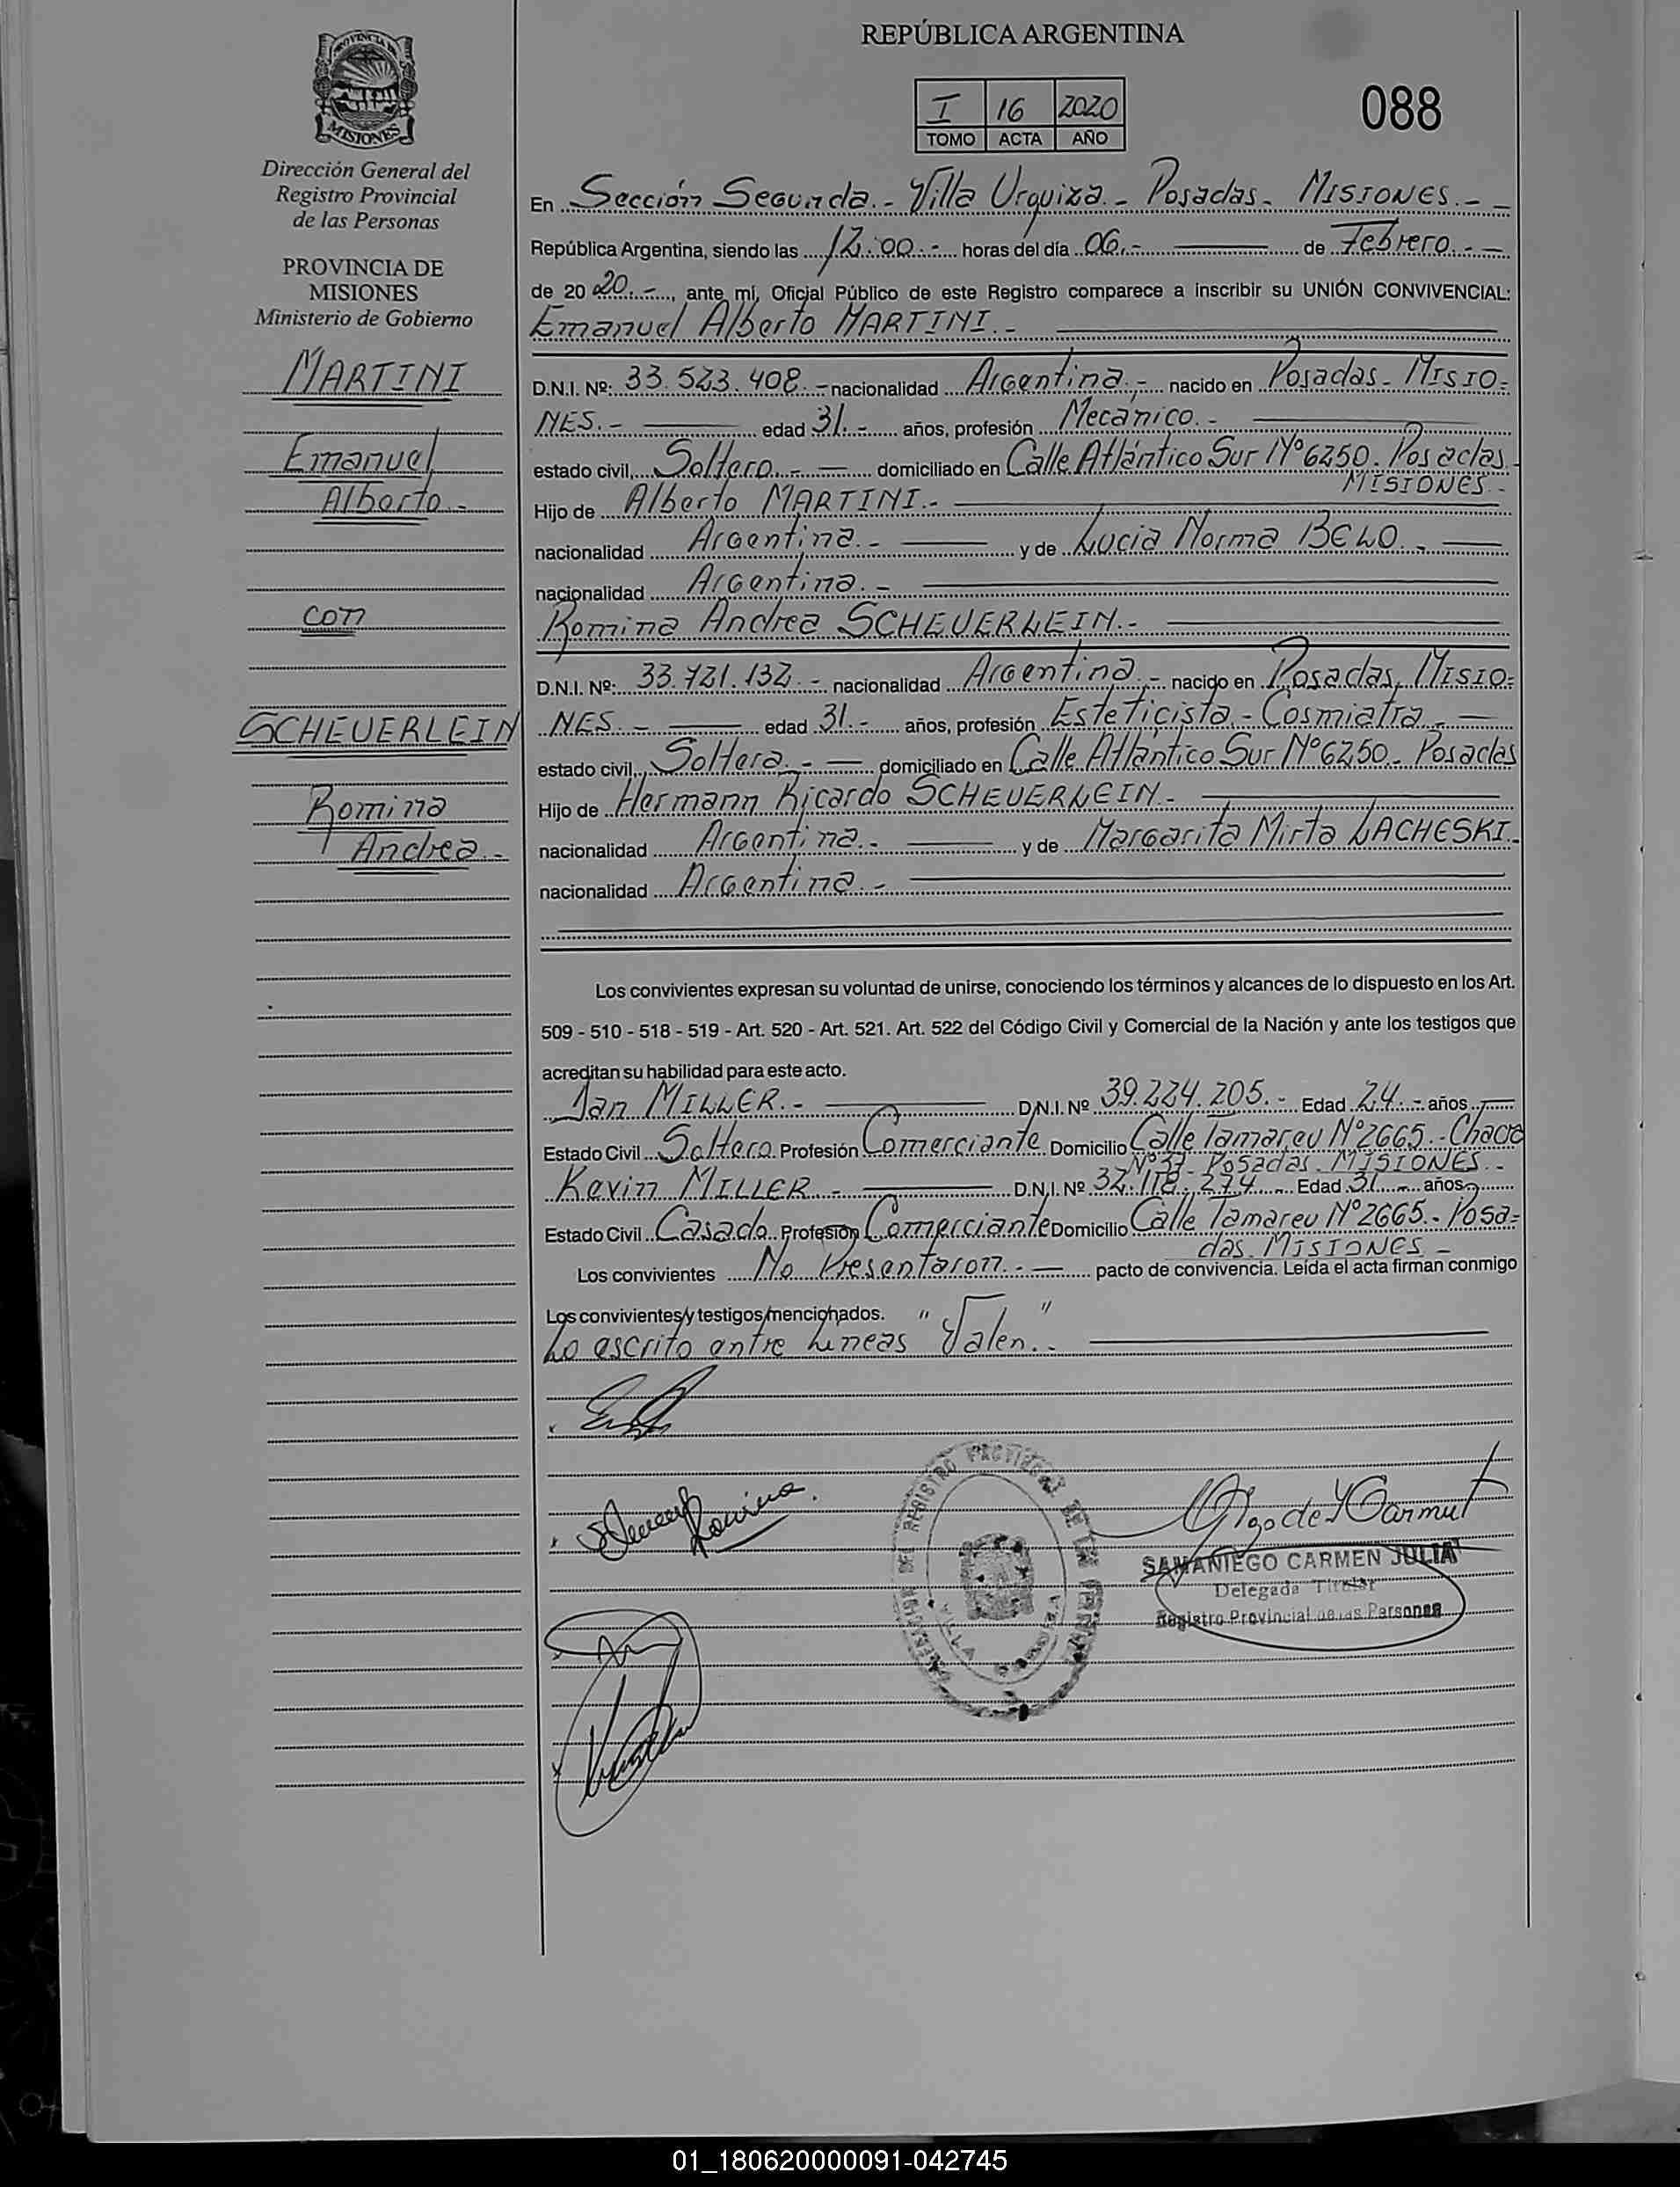 PROVINCIA DE
MISIONES
Dirección General del
Registro Provincial
de las Personas
PROVINCIA DE
MISIONES
Ministerio de Gobierno
MARTINI
Emanuel
Alberto.-
con
SCHEUERLEIN
Romina
Andrea.-
REPÚBLICA ARGENTINA
I 16 2020
TOMO ACTA AÑO
088
En Sección Segunda.- Villa Urquiza.- Posadas- MISIONES.- -
República Argentina, siendo las 12:00.- horas del día 06.- de Febrero.-
de 20 20.-, ante mí, Oficial Público de este Registro comparece a inscribir su UNIÓN CONVIVENCIAL:
Emanuel Alberto MARTINI.-
D.N.I. Nº: 33.523.408.- nacionalidad Argentina.- nacido en Posadas- MISIO-
NES.- edad 31.- años, profesión Mecánico.-
estado civil, Soltero.- domiciliado en Calle Atlántico Sur Nº6250. Posadas
MISIONES.-
Hijo de Alberto MARTINI.-
nacionalidad Argentina.- y de Lucia Norma BELO.-
nacionalidad Argentina.-
Romina Andrea SCHEUERLEIN.-
D.N.I. Nº: 33.721.132.- nacionalidad Argentina.- nacido en Posadas, MISIO-
NES.- edad 31.- años, profesión Esteticista - Cosmiatra.-
estado civil, Soltera.- domiciliado en Calle Atlántico Sur Nº6250.- Posadas
Hijo de Hermann Ricardo SCHEUERLEIN.-
nacionalidad Argentina.- y de Margarita Mirta LACHESKI.-
nacionalidad Argentina.-
Los convivientes expresan su voluntad de unirse, conociendo los términos y alcances de lo dispuesto en los Art.
509 - 510 - 518 - 519 - Art. 520 - Art. 521. Art. 522 del Código Civil y Comercial de la Nación y ante los testigos que
acreditan su habilidad para este acto.
Jan MILLER.- D.N.I. Nº 39.224.205.- Edad 24.- años
Estado Civil Soltero Profesión Comerciante Domicilio Calle Tamareu Nº2665.- Chacra
Nº33- Posadas. MISIONES.-
Kevin MILLER.- D.N.I. Nº 32.118.274 Edad 31 años
Estado Civil Casado Profesión Comerciante Domicilio Calle Tamareu Nº2665.- Posa-
das. MISIONES.-
Los convivientes No Presentaron.- pacto de convivencia. Leída el acta firman conmigo
Los convivientes y testigos mencionados.
Lo escrito entre Lineas "Valen".-
Romina
SAMANIEGO CARMEN JULIA
Delegada Titular
Registro Provincial de las Personas
01_180620000091-042745